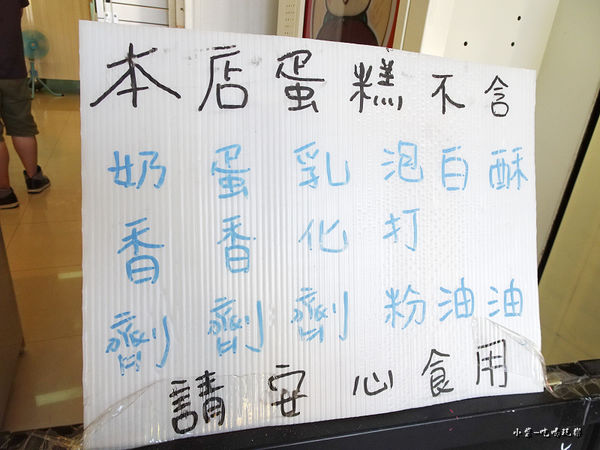 本店蛋糕不含
奶香劑
蛋香劑
乳化劑
泡打粉
白油
酥油
請安心食用
吃喝玩樂